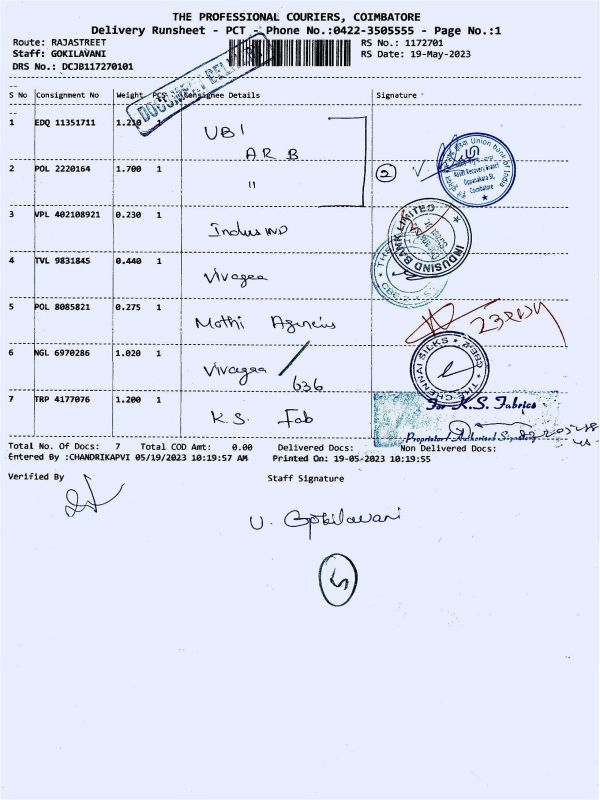 THE PROFESSIONAL COURIERS, COIMBATORE
Delivery Runsheet - PCT - Phone No.:0422-3505555 - Page No.:1
Route: RAJASTREET RS No.: 1172701
Staff: GOKILAVANI RS Date: 19-May-2023
DRS No.: DCJB117270101
DOCUMENT DELIVERY
S No Consignment No Weight PCS Consignee Details Signature
1 EDQ 11351711 1.210 1 UBI
ARB
Union Bank of India
Asset Recovery Branch
Oppanakara St,
Coimbatore
2 POL 2220164 1.700 1 " 2
3 VPL 402108921 0.230 1 IndusIND
INDUSIND BANK LIMITED
4 TVL 9831845 0.440 1 Vivagaa
5 POL 8085821 0.275 1 Mothi Agencies
6 NGL 6970286 1.020 1 Vivagaa / 636
THE CHENNAI SILKS CBE-2
7 TRP 4177076 1.200 1 K.S. Fab
For K.S. Fabrics
Proprietor / Authorised Signatory
Total No. Of Docs: 7 Total COD Amt: 0.00 Delivered Docs: Non Delivered Docs:
Entered By :CHANDRIKAPVI 05/19/2023 10:19:57 AM Printed On: 19-05-2023 10:19:55
Verified By Staff Signature
U. Gokilavani
5